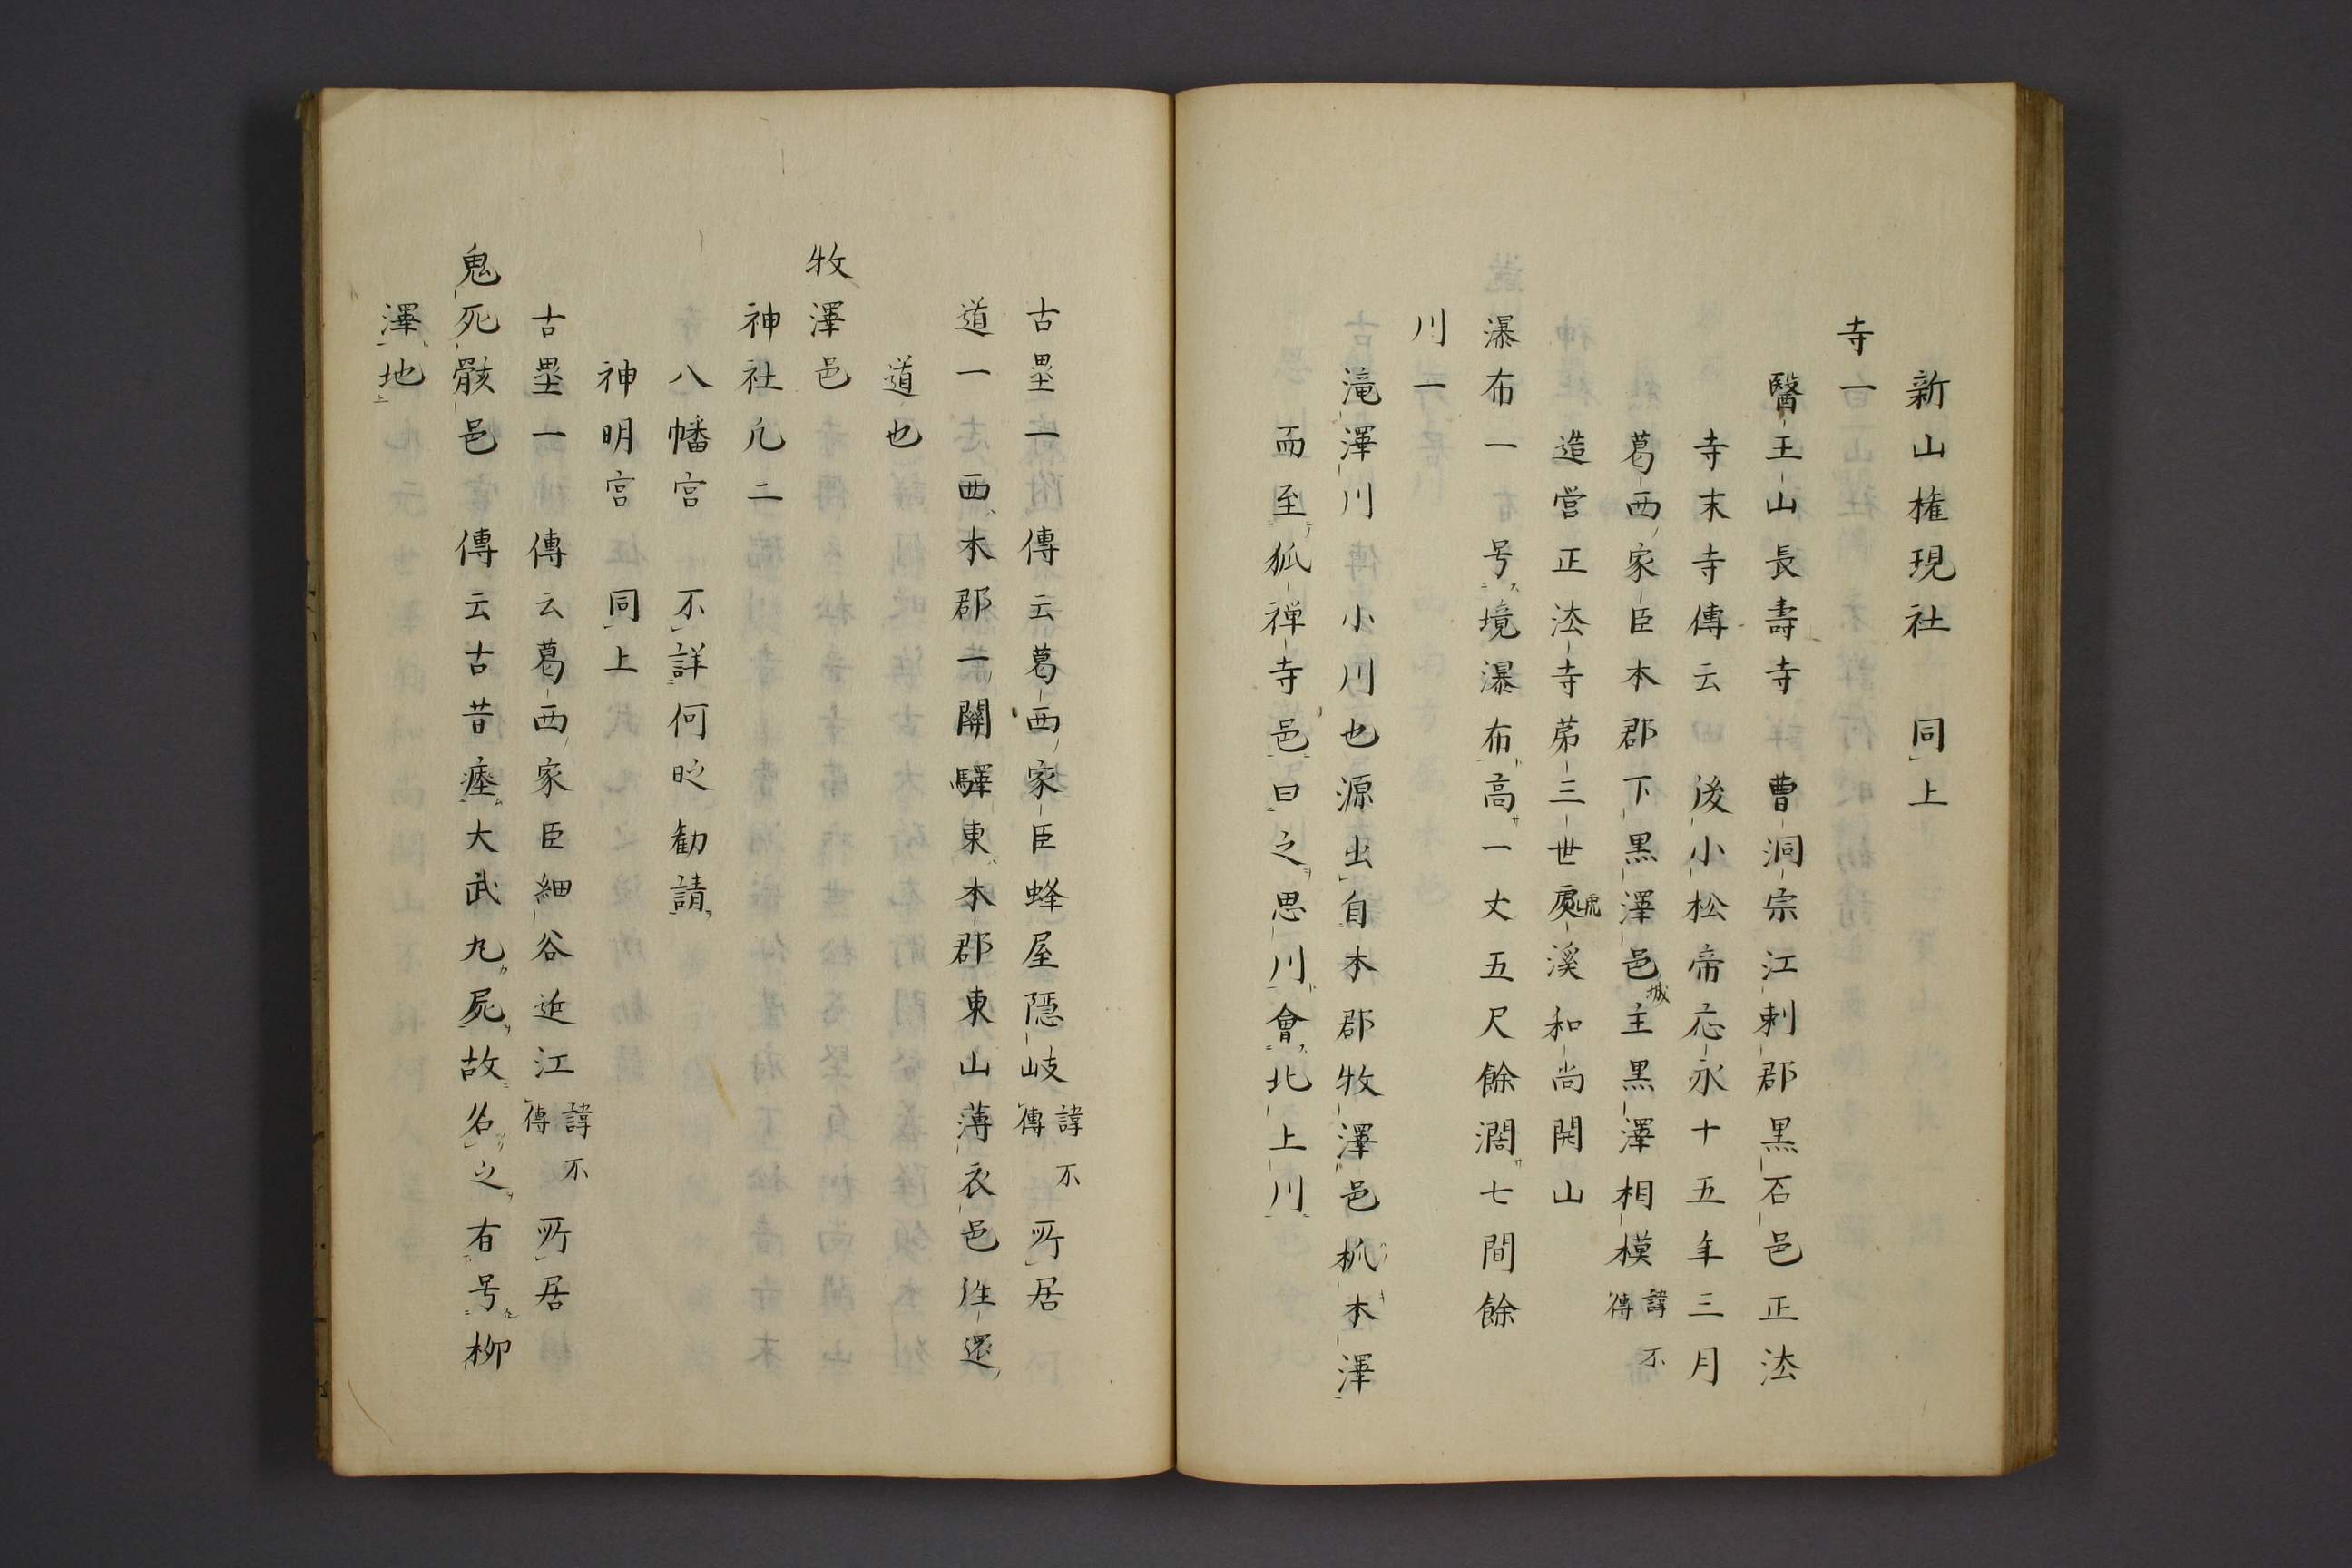 新山権現社　同上
寺一
醫王山長壽寺　曹洞宗江刺郡黒石邑正法
寺末寺傳云　後小松帝応永十五年三月
葛西家臣本郡下黒澤邑城主黒澤相模諱不傳
造営正法寺苐三世虎溪和尚開山
瀑布一　号境瀑布高一丈五尺餘濶七間餘
川一
滝澤川　小川也源出自本郡牧澤邑柧木澤
而至狐禅寺邑曰之思川會北上川
古壘一　傳云葛西家臣蜂屋隠岐諱不傳所居
道一　西本郡一關驛東本郡東山薄衣邑往還
道也
牧澤邑
神社凢二
八幡宮　不詳何时勧請
神明宮　同上
古壘一　傳云葛西家臣細谷近江諱不傳所居
鬼死骸邑　傳云古昔瘞大武丸屍故名之有号柳
澤地